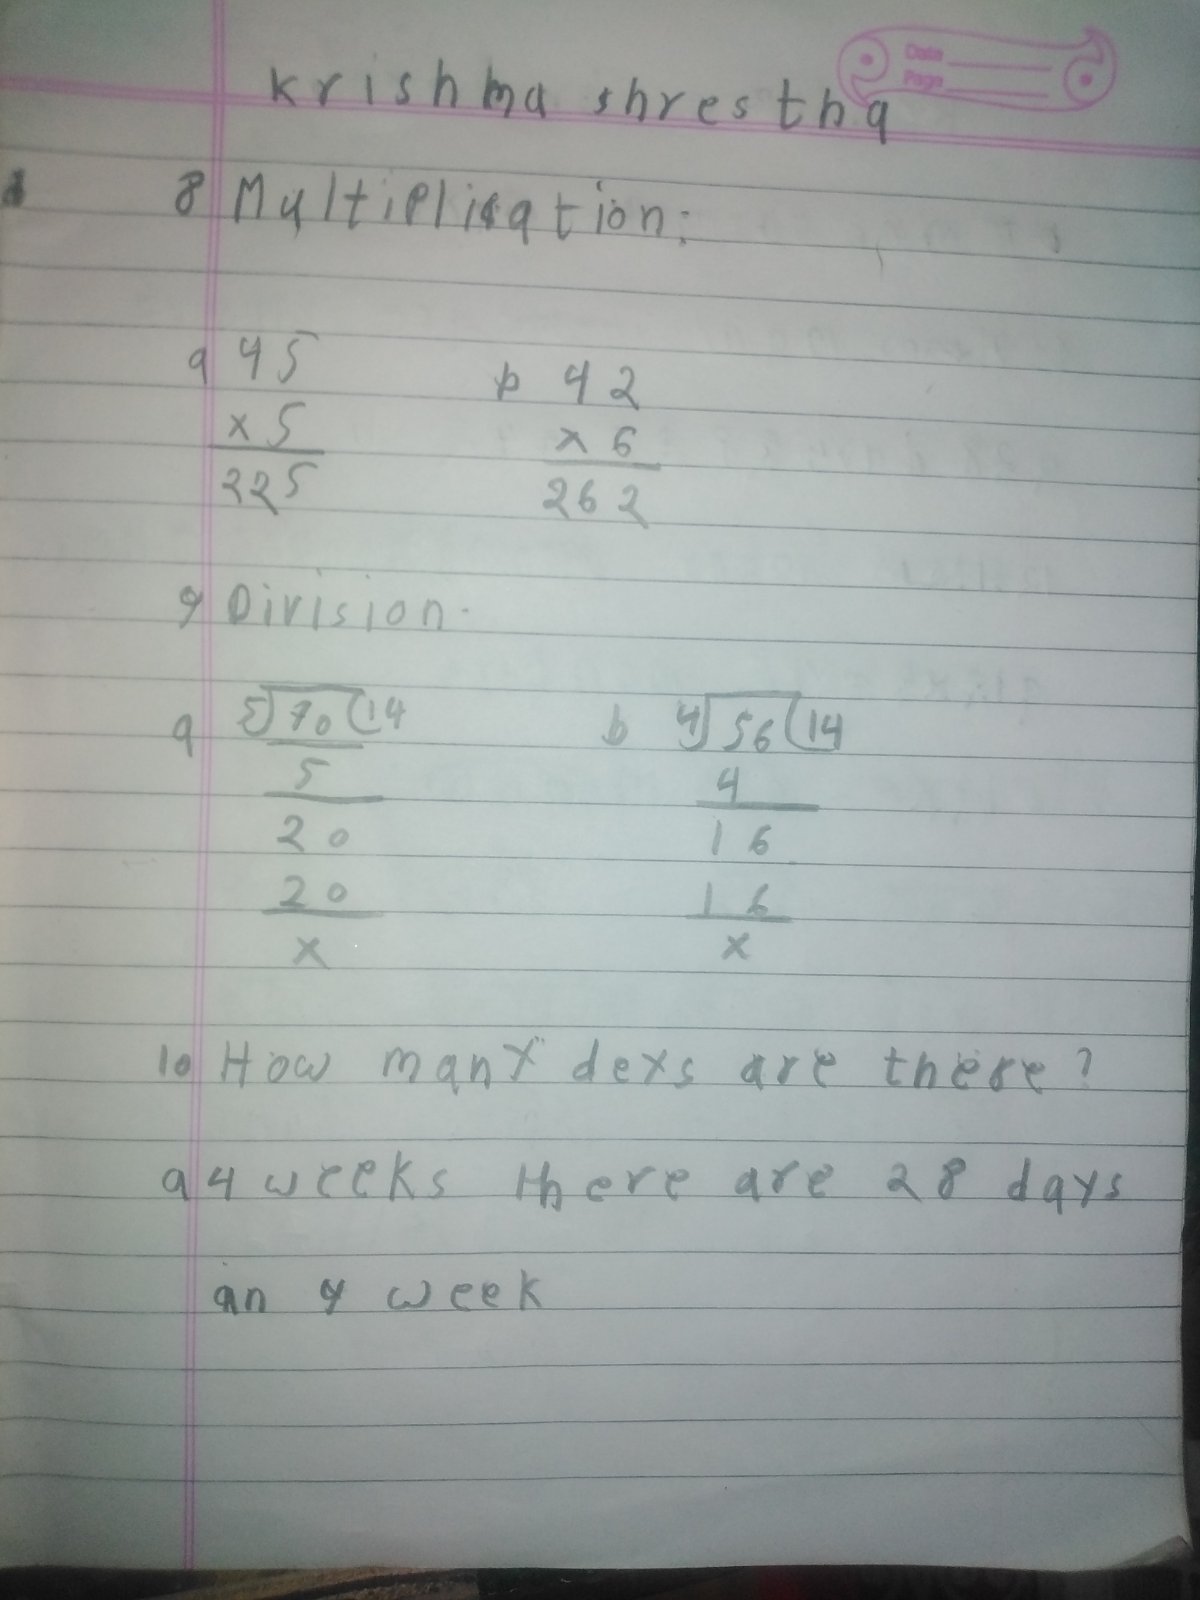 Date
Page
krishma shrestha
8 Multiplication:
a 45
x 5
225
b 42
x 6
262
9 Division.
a 5)70(14
5
20
20
x
b 4)56(14
4
16
16
x
10 How many deys are there?
a 4 weeks there are 28 days
an 4 week